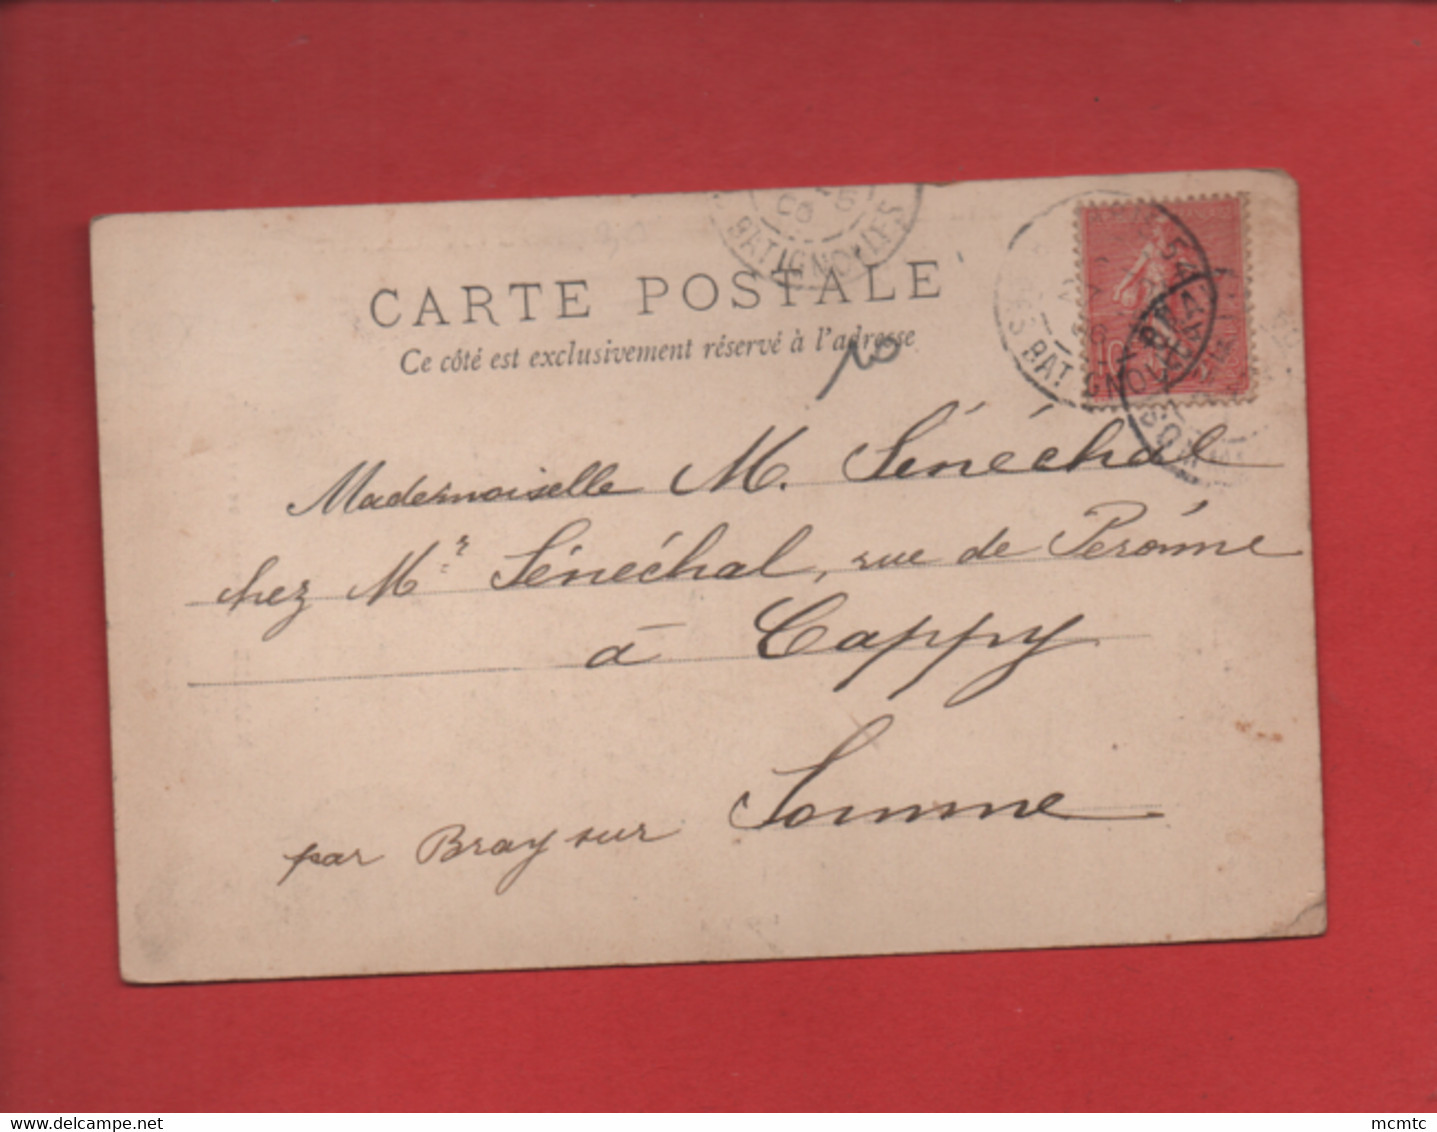 BATIGNOLLES
CARTE POSTALE
Ce côté est exclusivement réservé à l'adresse
10
Mademoiselle M. Sénéchal
chez Mr Sénéchal, rue de Péronne
à Cappy
Somme
par Bray sur
delcampe.net
mcmtc